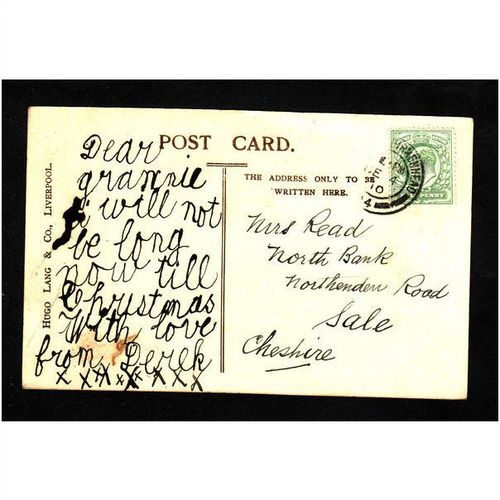 POST CARD.
HUGO LANG & CO., LIVERPOOL.
Dear
grannie
i will not
be long
now till
Christmas
With love
from Derek
x x x x x x x x x
THE ADDRESS ONLY TO BE
WRITTEN HERE.
Mrs Read
North Bank
Northenden Road
Sale
Cheshire